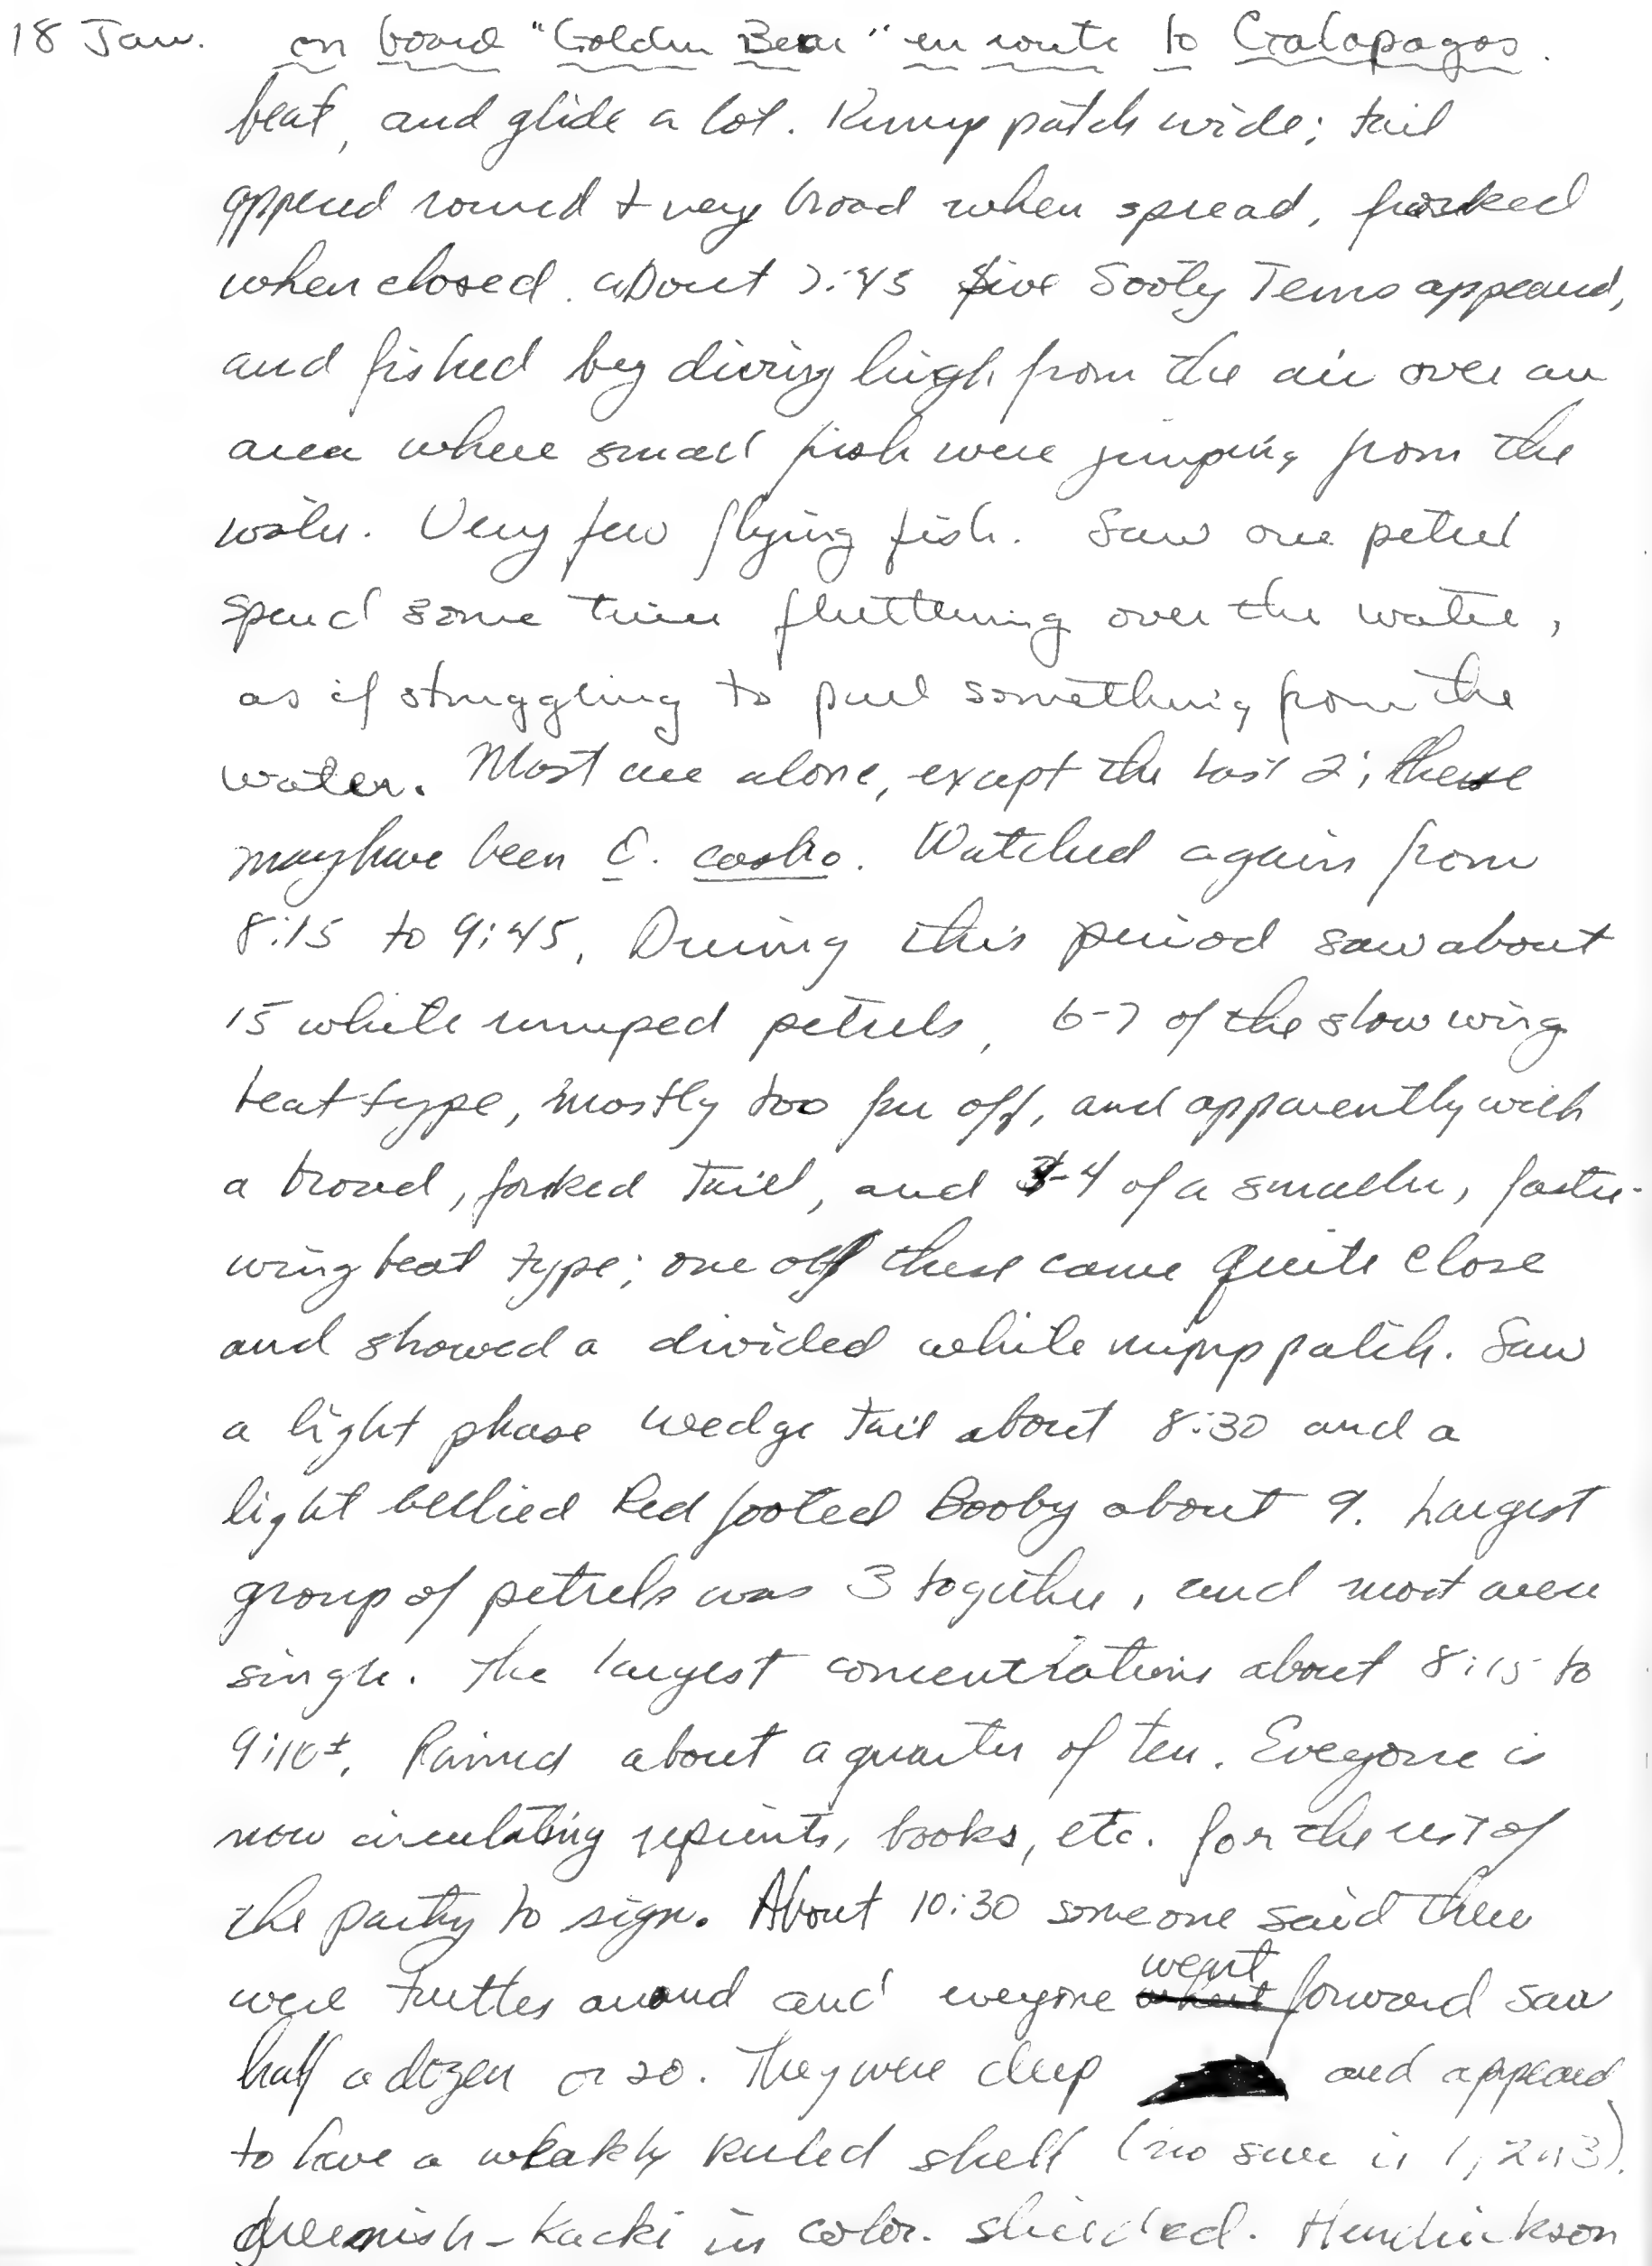 18 Jan. on board "Golden Bear" en route to Galapagos.
beat, and glide a lot. Rump patch wide; tail
appeared round & very broad when spread, forked
when closed. about 7:45 five Sooty Terns appeared,
and fished by diving high from the air over an
area where small fish were jumping from the
water. Very few flying fish. Saw one petrel
spend some time fluttering over the water,
as if struggling to pull something from the
water. Most are alone, except the last 2; these
may have been O. castro. Watched again from
8:15 to 9:45. During this period saw about
15 white rumped petrels, 6-7 of the slow wing
beat type, mostly too far off, and apparently with
a broad, forked tail, and 3-4 of a smaller, faster-
wing beat type; one of these came quite close
and showed a divided white rump patch. Saw
a light phase wedge tail about 8:30 and a
light bellied Red footed Booby about 9. Largest
group of petrels was 3 together, and most were
single. The largest concentrations about 8:15 to
9:10±. Rained about a quarter of ten. Everyone is
now circulating reprints, books, etc. for the rest of
the party to sign. About 10:30 someone said there
were turtles around and everyone went forward saw
half a dozen or so. They were deep and appeared
to have a weakly keeled shell (no sure is 1, 2 or 3).
Greenish-Kacki in color. shielded. Hendrickson